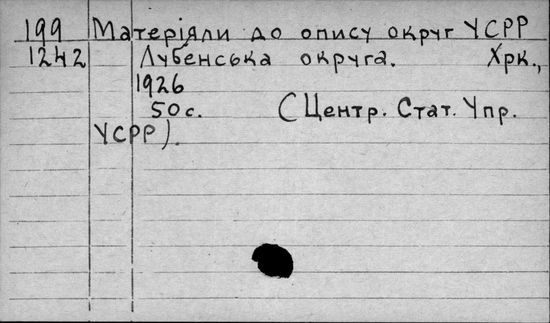 199 Матеріяли до опису округ УСРР
1242 Лубенська округа. Хрк.,
1926
50 с. (Центр. Стат. Упр.
УСРР).